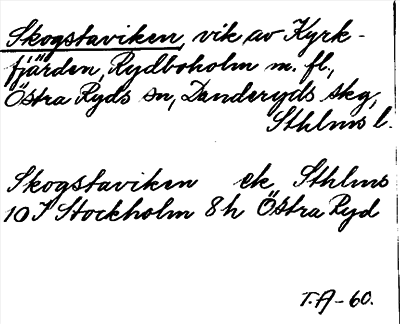 Skogstaviken, vik av Kyrk-
fjärden, Rydboholm m. fl.,
Östra Ryds sn, Danderyds skg,
Sthlms l.
Skogstaviken ek, Sthlms
10 I Stockholm 8h Östra Ryd
T.A-60.